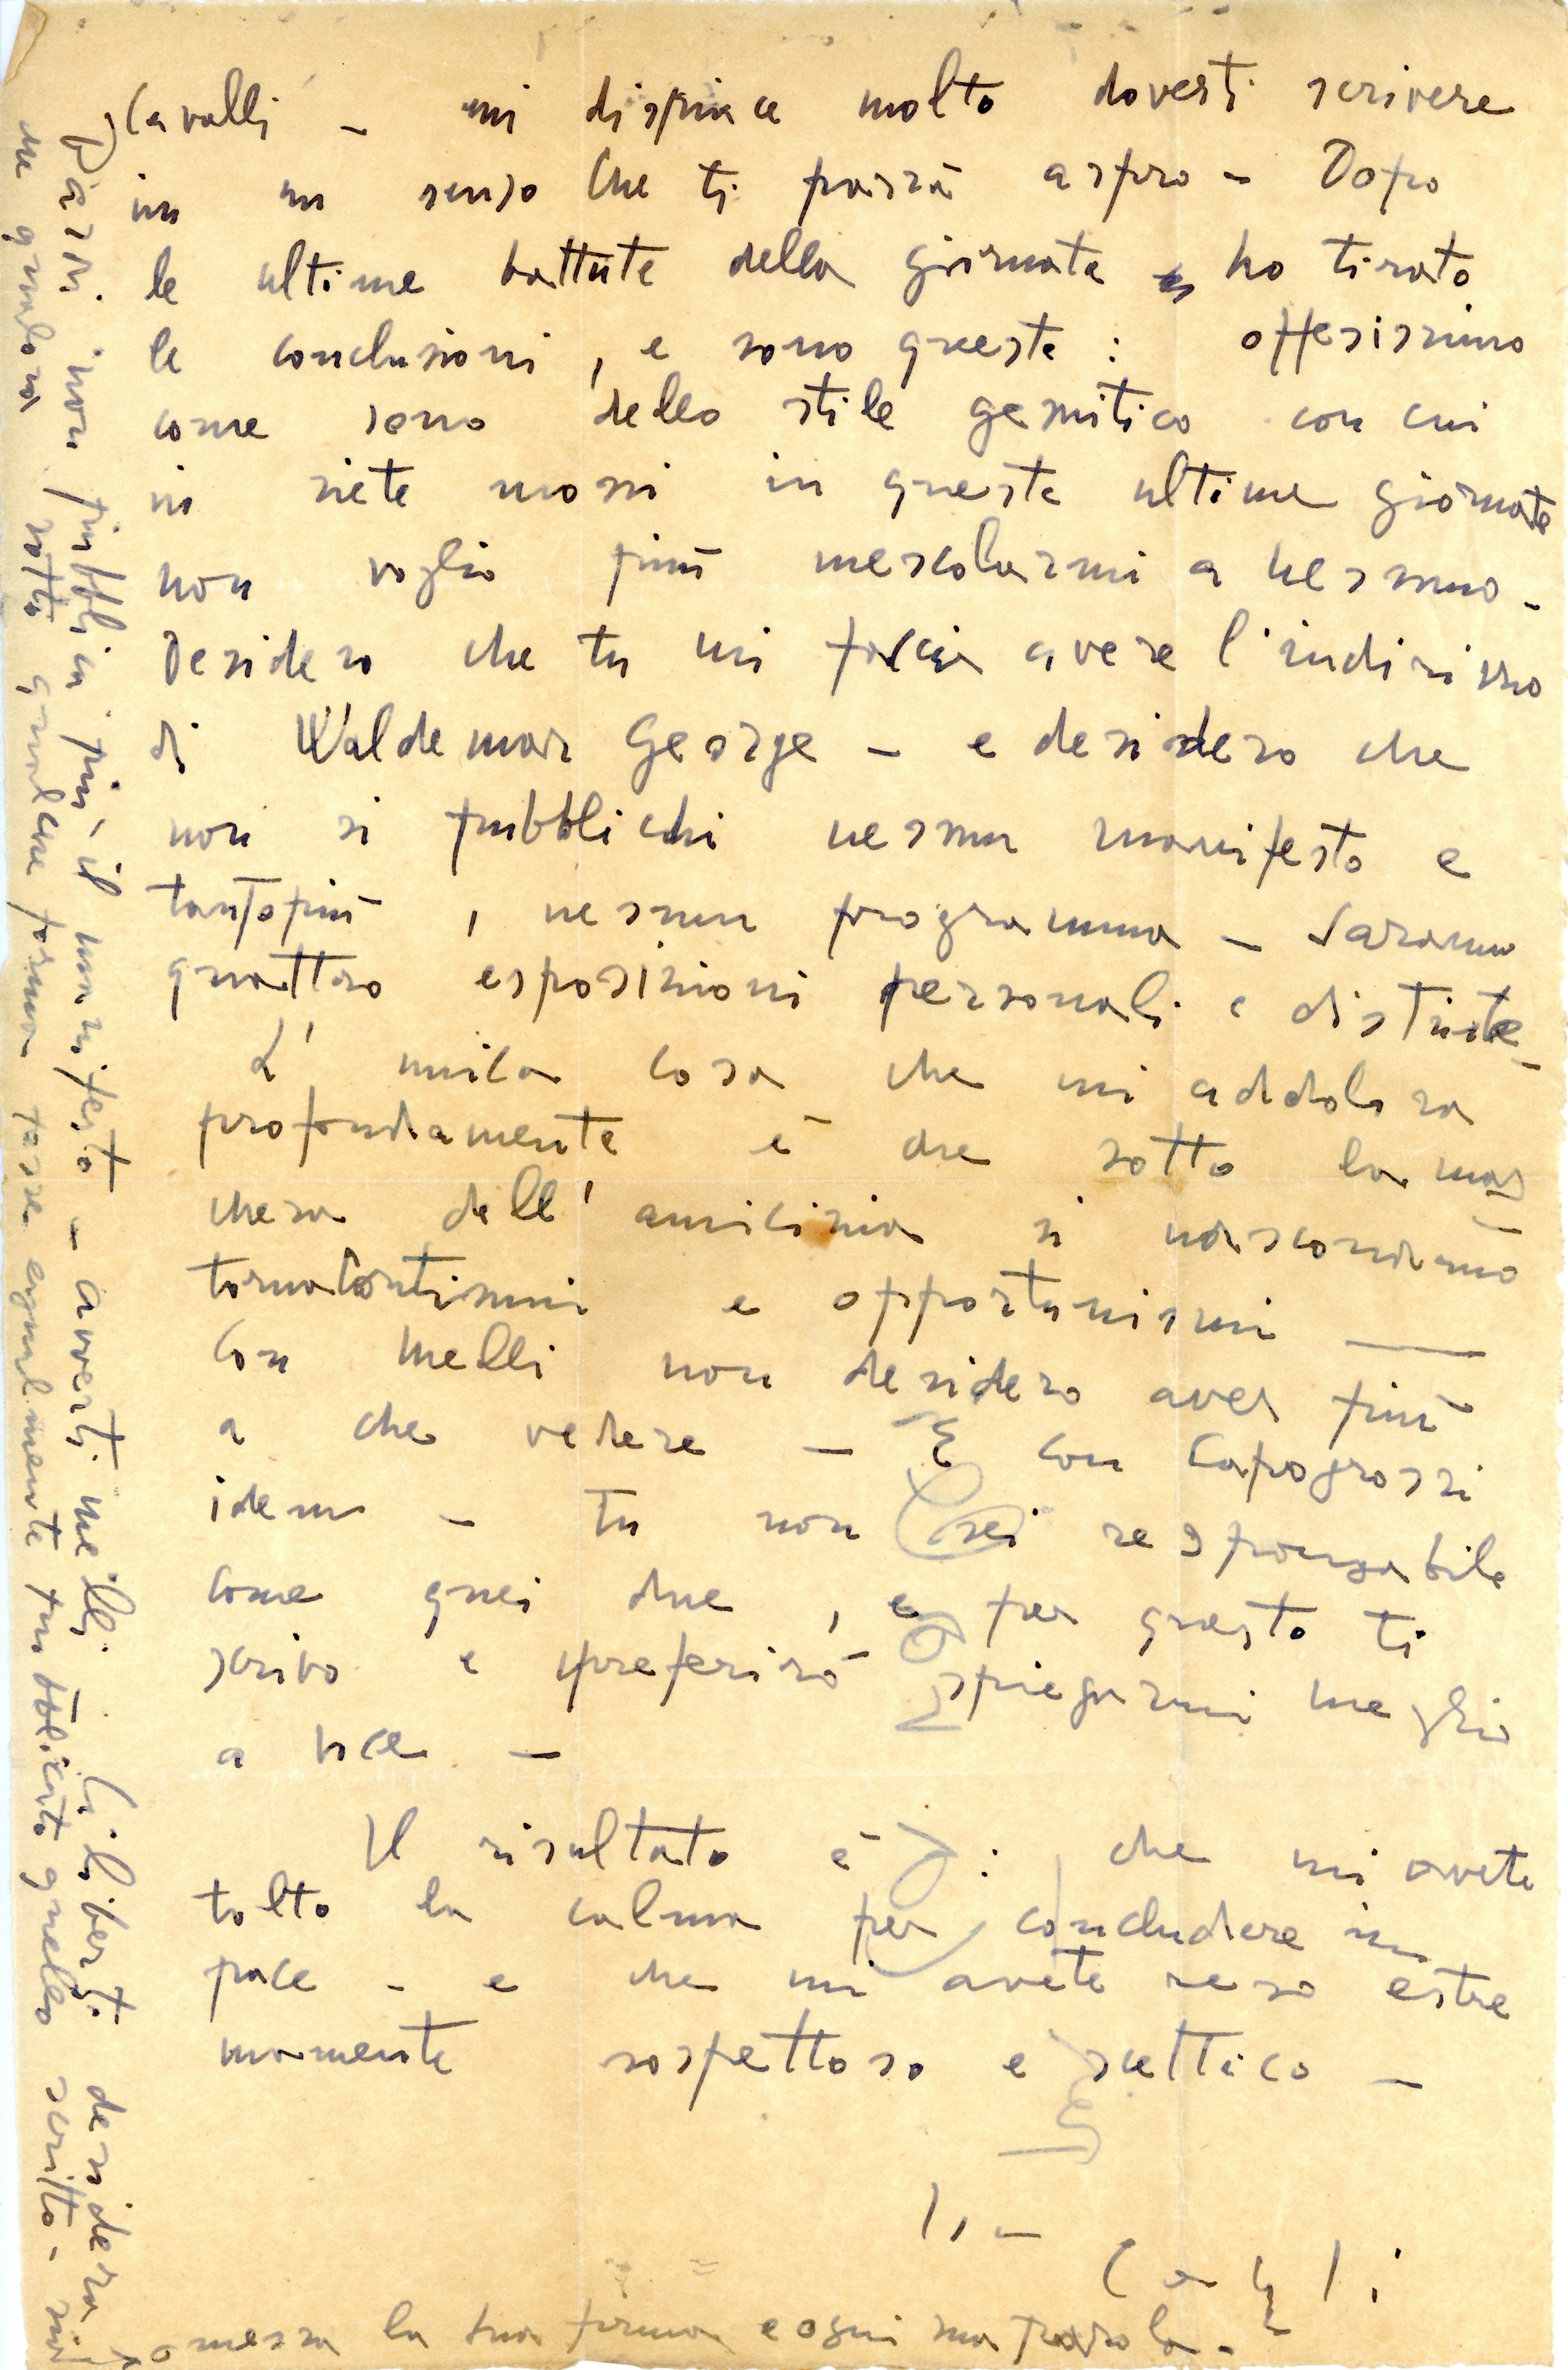 Cavalli – mi dispiace molto doverti scrivere
in un senso che ti parrà aspro – Dopo
le ultime battute della giornata ho tirato
le conclusioni, e sono queste: offesissimo
come sono dello stile gesuitico con cui
vi siete mossi in queste ultime giornate
non voglio più mescolarmi a nessuno –
Desidero che tu mi faccia avere l'indirizzo
di Waldemar George – e desidero che
non si pubblichi nessun manifesto e
tantopiù, nessun programma – Saranno
quattro esposizioni personali e distinte –
L'unica cosa che mi addolora
profondamente è che sotto la mas
chera dell'amicizia si nascondano
tornatontismi e opportunismi —
Con Melli non desidero aver più
a che vedere – E con Capogrossi
idem – tu non sei responsabile
come quei due, e per questo ti
scrivo e preferirò spiegarmi meglio
a voce –
Il risultato è: che mi avete
tolto la calma per concludere in
pace – e che mi avete reso estre
mamente sospettoso e scettico –
Cagli
Pardi non pubblica più il manifesto – avverti Melli – Ciliberti desidera sia
omessa la sua firma e ogni sua parola –
che qualora sotto qualche forma fosse egualmente pubblicato quello scritto, sia